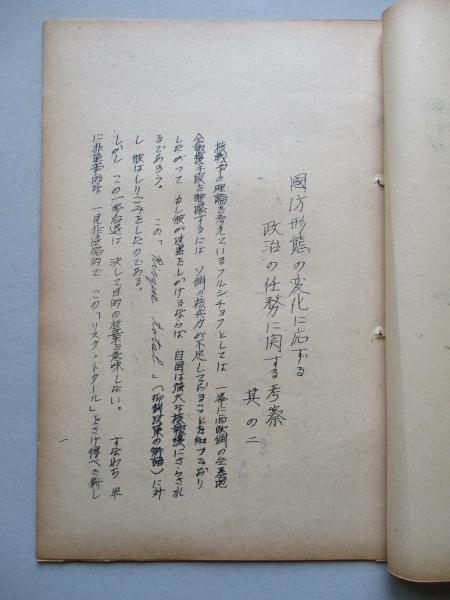 國防形態の変化に応ずる
政治の任務に関する考察
其の二
核戦争の理論を考えているフルシチョフとしては 一挙に西欧側の全基地
全報復手段を破壊するには ソ側の核兵力が不足しておることを知っており
したがって もし彼が攻撃をしかけるならば 自国は強大な核報復にさらされ
るであろう。 この「Risque total」(抑制政策の術語)に対
し 彼はしりごみをしたのである。
しかし この一歩后退は 決して目的の放棄を意味しない。 すなわち 単
に非軍事的な 一見非侵略的で この「リスク・トタール」をさけ得べき新し
一